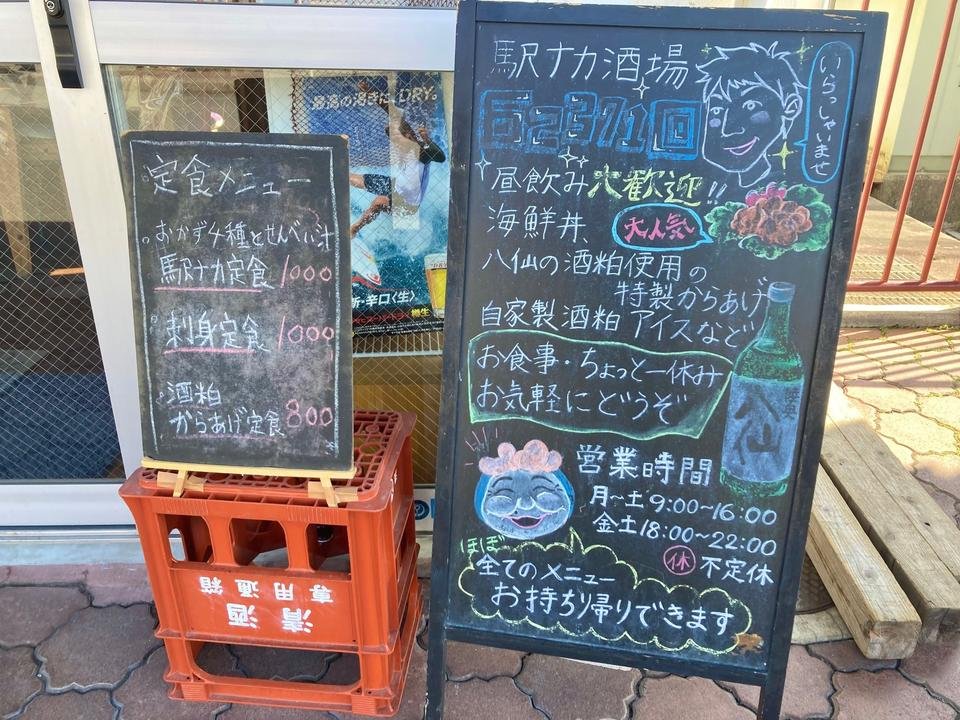 定食メニュー
おかず4種とせんべい汁
駅ナカ定食 1000
刺身定食 1000
酒粕
からあげ定食 800
清酒
専用通箱
駅ナカ酒場
いらっしゃいませ
昼飲み大歓迎!!
海鮮丼、
大人気
八仙の酒粕使用の
特製からあげ
自家製酒粕アイスなど
お食事・ちょっと一休み
お気軽にどうぞ
八仙
営業時間
月～土 9:00～16:00
金土 18:00～22:00
休 不定休
ほぼ
全てのメニュー
お持ち帰りできます
DRY。
辛口〈生〉